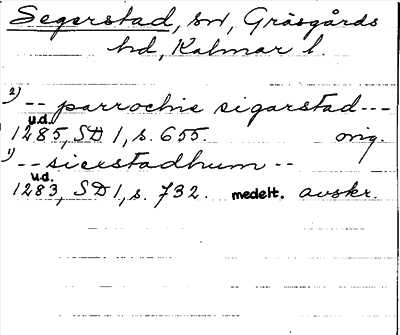 Segerstad, sn, Gräsgårds
hd, Kalmar l.
2) -- parrochie sigarstad ---
u.d.
1285, SD 1, s. 655. orig.
1) -- sierstadhum --
u.d.
1283, SD 1, s. 732. medelt. avskr.